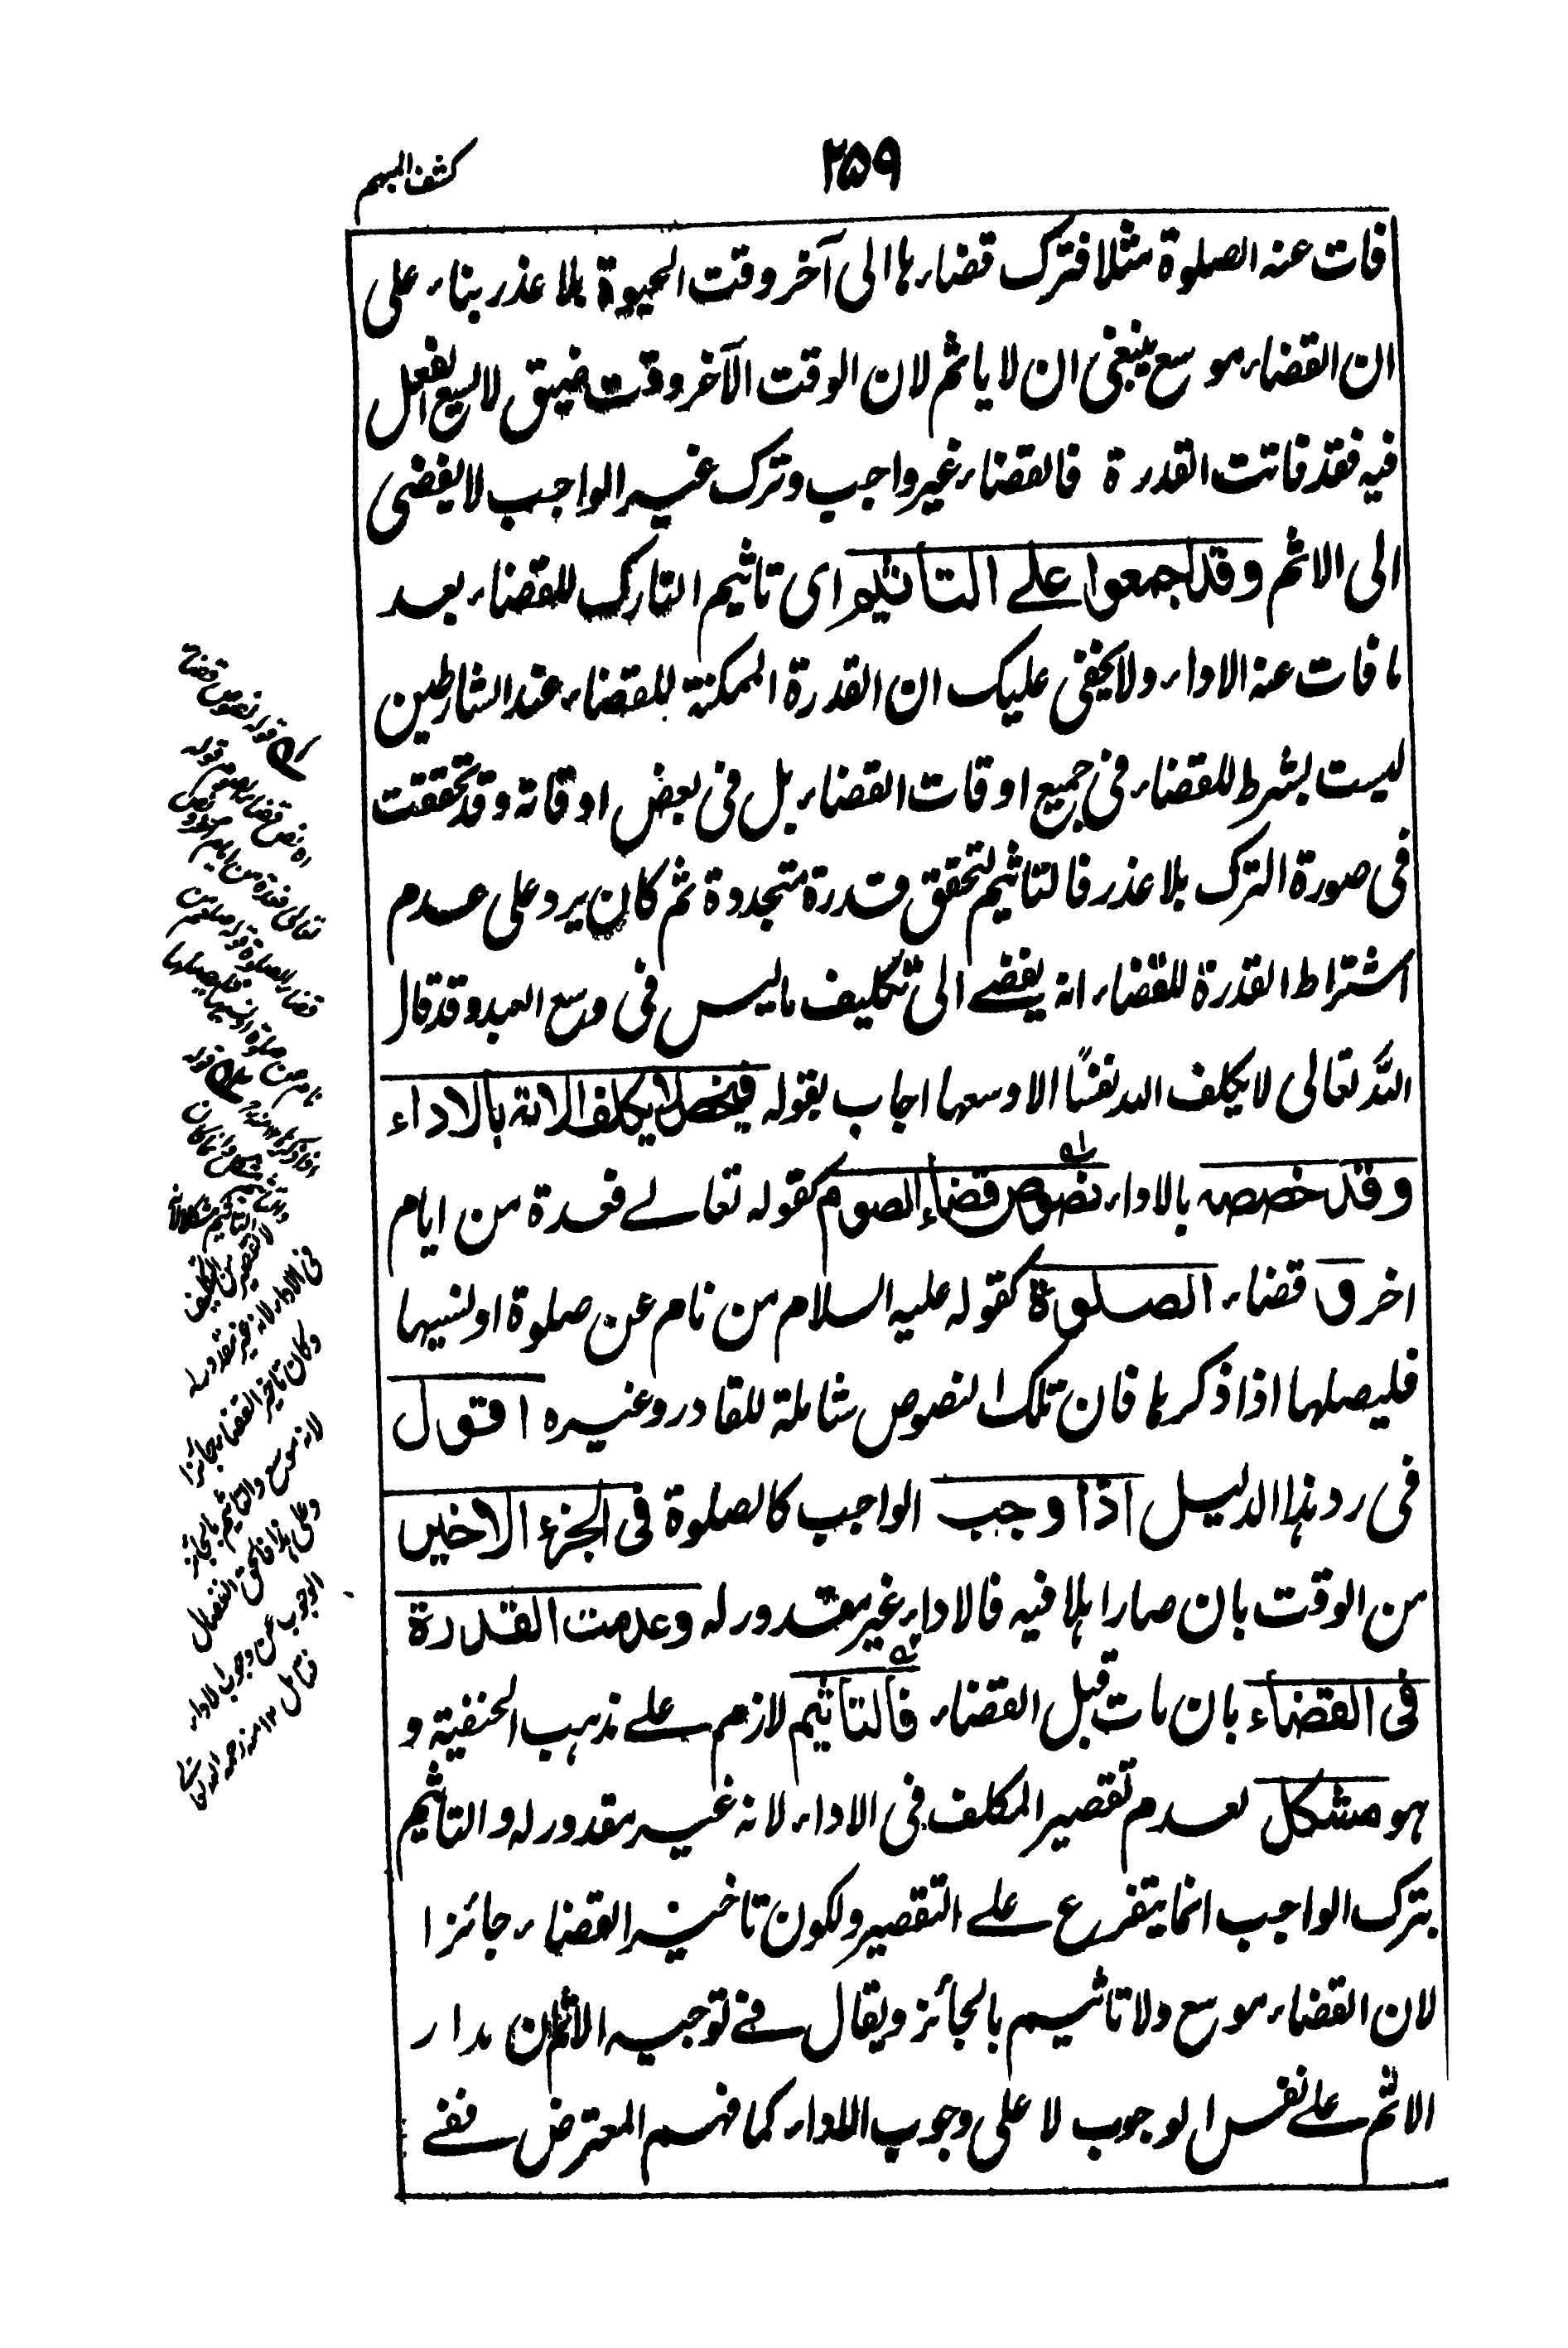 ۲۵۹
كشف المبهم
فات عنه الصلوة مثلا فترك قضاءها الى آخر وقت الحيوة بلا عذر بناء على
ان القضاء موسع ينبغى ان لا ياثم لان الوقت الآخر وقت ضيق لا يسع الفعل
فيه فقد فاتت القدرة فالقضاء غير واجب وترك غير الواجب لا يفضى
الى الاثم وقد اجمعوا على التاثيم اى تاثيم التارك للقضاء بعد
ما فات عنه الاداء ولا يخفى عليك ان القدرة الممكنة للقضاء عند الشارطين
ليست بشرط للقضاء فى جميع اوقات القضاء بل فى بعض اوقاته وقد تحققت
فى صورة الترك بلا عذر فالتاثيم لتحقق قدرة متجددة ثم كان يرد على عدم
اشتراط القدرة للقضاء انه يفضے الى تكليف ما ليس فى وسع العبد وقد قال
الله تعالى لا يكلف الله نفسًا الا وسعها اجاب بقوله فيخص لا يكلف الاية بالاداء
وقد خصصه بالاداء نصوص قضاء الصوم كقوله تعالے فعدة من ايام
اخر و قضاء الصلوة كقوله عليه السلام من نام عن صلوة او نسيها
فليصلها اذا ذكرها فان تلك النصوص شاملة للقادر وغيره اقول
فى رد هذا الدليل اذا وجب الواجب كالصلوة فى الجزء الاخير
من الوقت بان صار اهلا فيه فالاداء غير مقدور له وعدمت القدرة
فى القضاء بان مات قبل القضاء فالتاثيم لازم علے مذهب الحنفية و
هو مشكل لعدم تقصير المكلف فى الاداء لانه غير مقدور له والتاثيم
بترك الواجب انما يتفرع علے التقصير ولكون تاخير القضاء جائزا
لان القضاء موسع ولا تاثيم بالجائز ويقال فے توجيه الاثم ان مدار
الاثم علے نفس الوجوب لا على وجوب الاداء كما فهم المعترض ففے
قوله نصوص قضاء
تعالى فعدة من ايام
فى الاداء لانه غير مقدور له
وكان تاخير القضاء جائزا
لانه موسع والتاثيم بالجائز
وعلى هذا فالحق انفصال
الوجوب عن وجوب الاداء
فتامل ١٢ منه رحمه الله تعالى